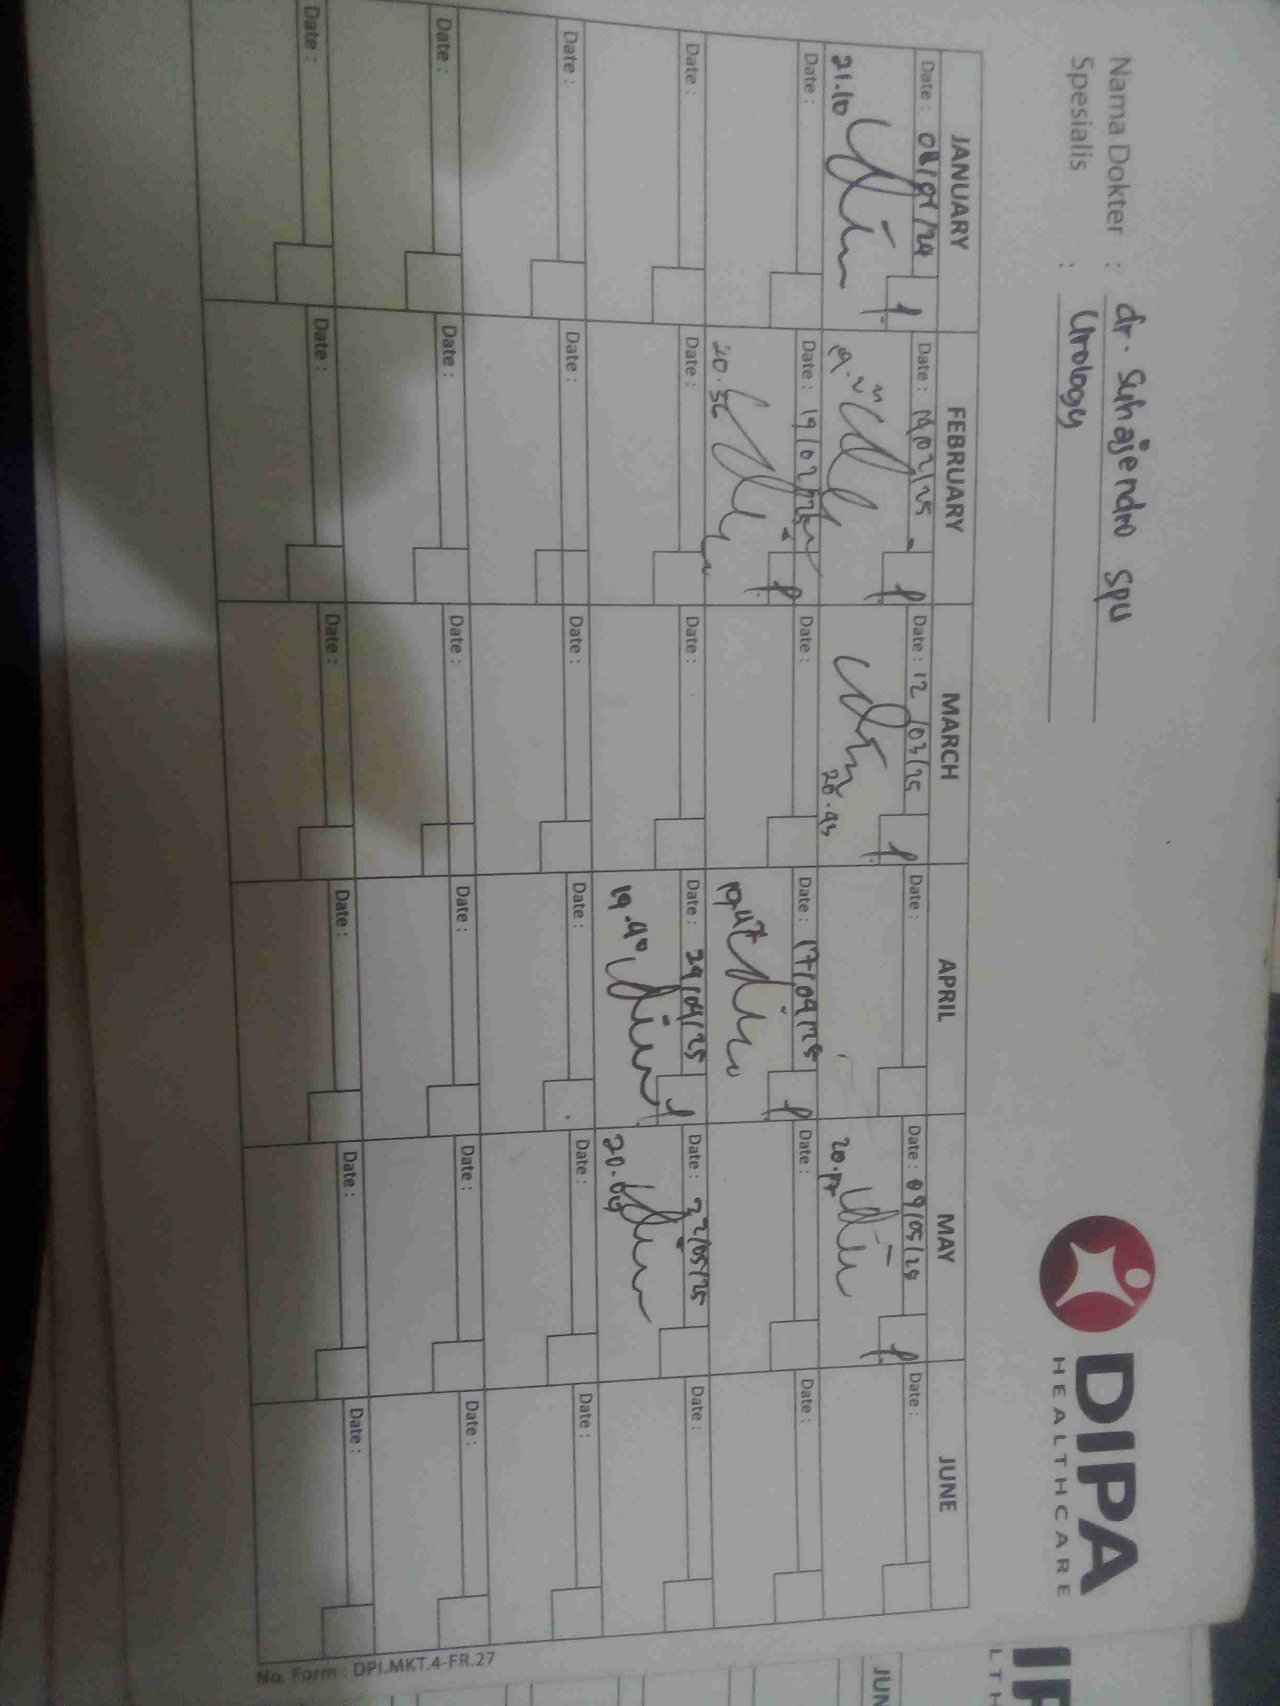 DIPA
HEALTHCARE
Nama Dokter : dr. Suhajendro SpU
Spesialis : Urology
JANUARY FEBRUARY MARCH APRIL MAY JUNE
Date : Date : 19/02/25 Date : 12/03/25 Date : Date : 09/05/25 Date :
21.10 20.43 20.17
Date : Date : 19/02/25 Date : Date : 17/04/25 Date : Date :
20.36 19.47
Date : Date : Date : Date : 29/04/25 Date : 22/05/25 Date :
19.40 20.09
Date : Date : Date : Date : Date : Date :
Date : Date : Date : Date : Date : Date :
Date : Date : Date : Date : Date : Date :
No. Form : DPI.MKT.4-FR.27
JUN